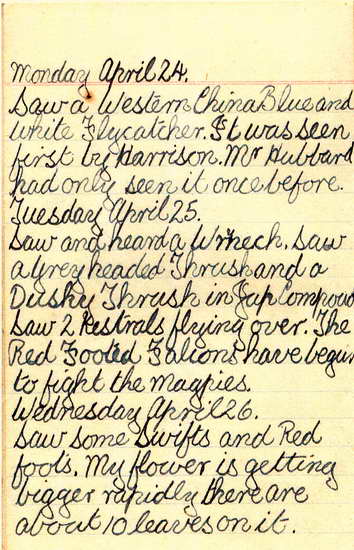 Monday April 24.
Saw a Western China Blue and
White Flycatcher. It was seen
first by Harrison. Mr Hubbard
had only seen it once before.
Tuesday April 25.
Saw and heard a Wrhech. Saw
a grey headed Thrush and a
Dusky Thrush in Jap Compoud
Saw 2 Kestrals flying over. The
Red Footed Falcons have begun
to fight the magpies.
Wednesday April 26.
Saw some Swifts and Red
foots. My flower is getting
bigger rapidly there are
about 10 leaves on it.